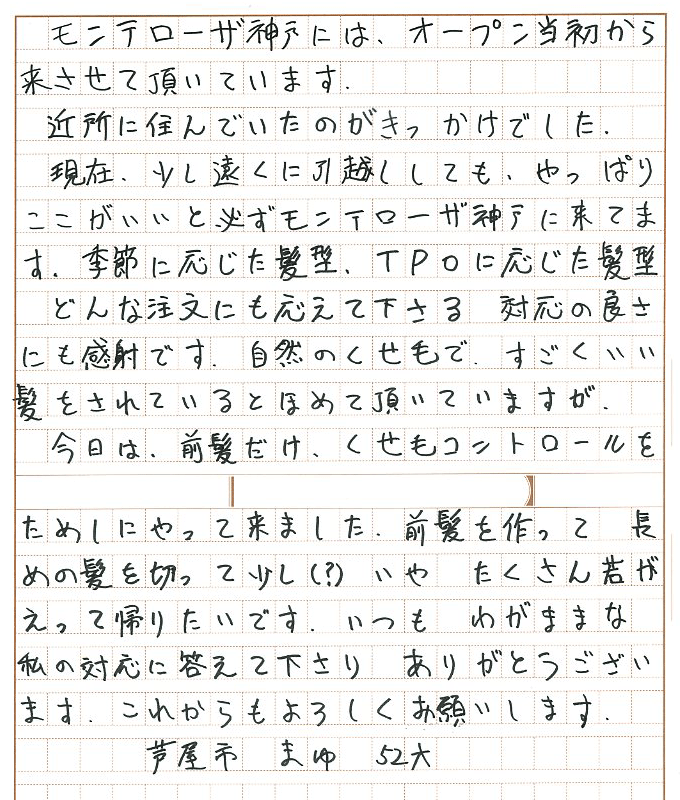 モンテローザ神戸には、オープン当初から
来させて頂いています.
近所に住んでいたのがきっかけでした.
現在、少し遠くに引越ししても、やっぱり
ここがいいと必ずモンテローザ神戸に来てま
す. 季節に応じた髪型、TPOに応じた髪型
どんな注文にも応えて下さる 対応の良さ
にも感射です. 自然のくせ毛で、すごくいい
髪をされているとほめて頂いていますが.
今日は、前髪だけ、くせもコントロールを
ためしにやって来ました. 前髪を作って 長
めの髪を切って少し(?) いや たくさん若が
えって帰りたいです. いつも わがままな
私の対応に答えて下さり ありがとうござい
ます. これからもよろしくお願いします.
芦屋市 まゆ 52才